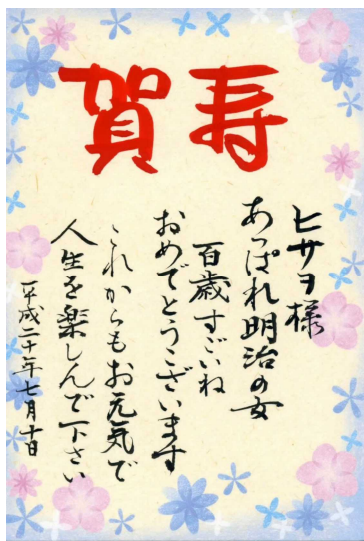 賀寿
ヒサヲ様
あっぱれ明治の女
百歳すごいね
おめでとうございます
これからもお元気で
人生を楽しんで下さい
平成二十一年七月十日